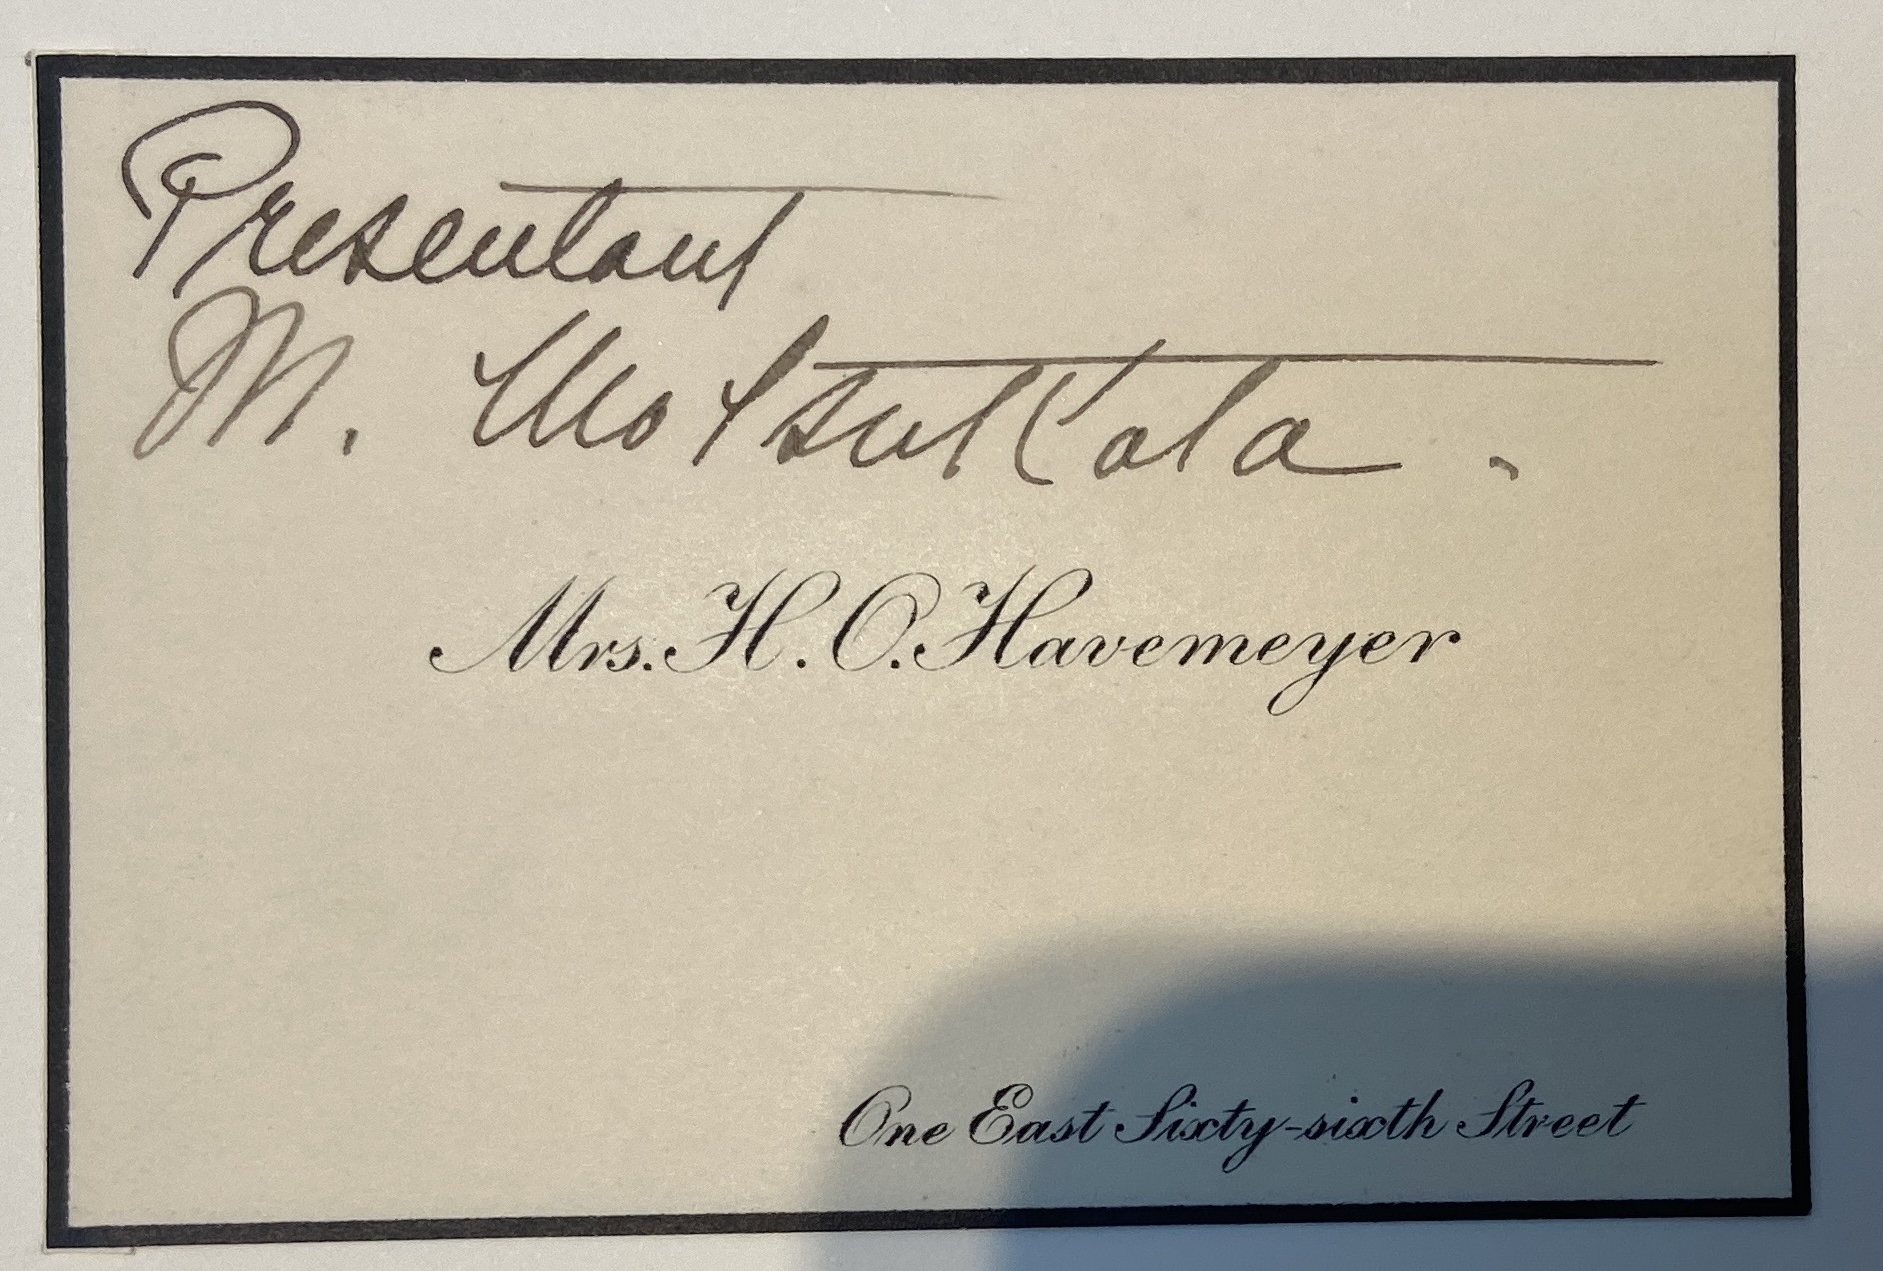 Presentant
M. Motsukata.
Mrs. H. O. Havemeyer
One East Sixty-sixth Street